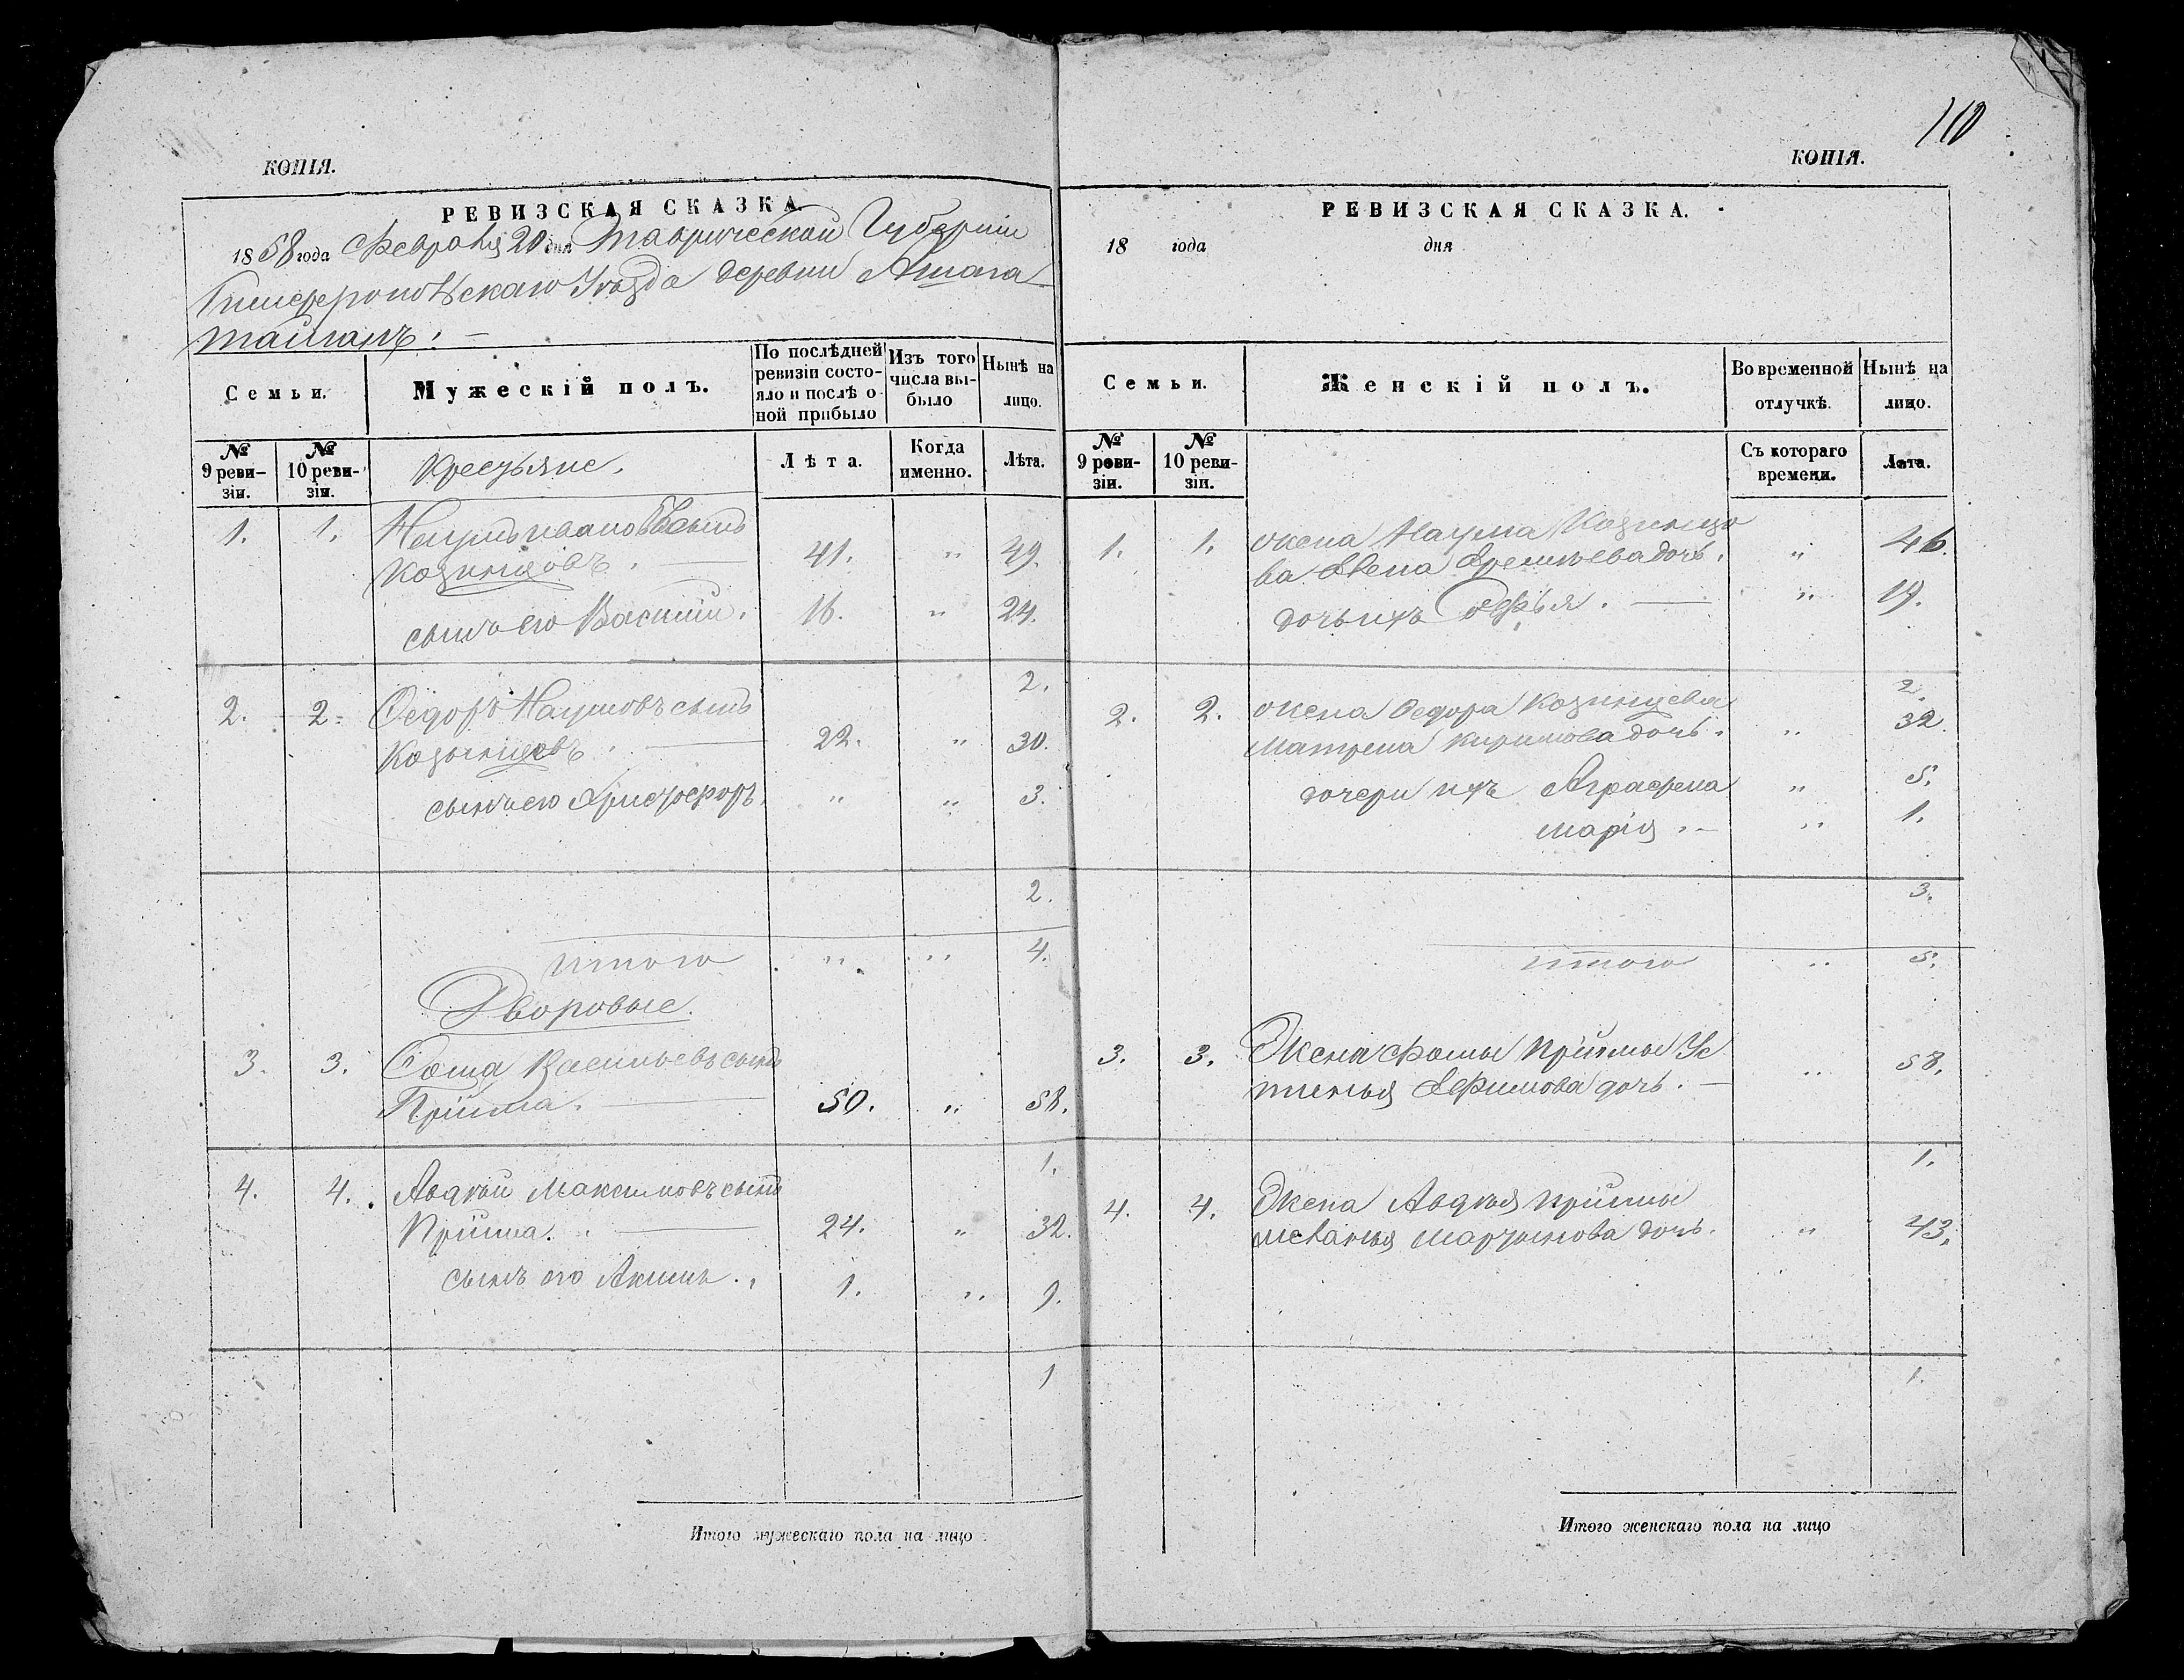 КОПІЯ.
РЕВИЗСКАЯ СКАЗКА.
1858 года Февраля 20 дня Таврической Губерніи
Симферопольскаго Уѣзда деревни Ашага
Тайганъ: —
Семьи. Мужескій полъ. По послѣдней ревизіи состояло и послѣ оной прибыло Изъ того числа выбыло Нынѣ на лицо.
№ 9 ревизіи. № 10 ревизіи. Крестьяне. Лѣта. Когда именно. Лѣта.
1. 1. Наумъ Ивановъ сынъ
Козинцовъ. — 41. " 49.
сынъ его Василий. 16. " 24.
2.
2. 2. Ѳедоръ Наумовъ сынъ
Козынцовъ. — 22. " 30.
сынъ его Христофоръ. " " 3.
2.
итого " " 4.
Дворовые.
3. 3. Ѳома Васильевъ сынъ
Пріима. — 50. " 58.
1.
4. 4. Авдкій Максимовъ сынъ
Пріима. — 24. " 32.
сынъ его Акимъ. 1. " 9.
1
Итого мужескаго пола на лицо
110
КОПІЯ.
РЕВИЗСКАЯ СКАЗКА.
18 года дня
Семьи. Женскій полъ. Во временной отлучкѣ. Нынѣ на лицо.
№ 9 ревизіи. № 10 ревизіи. Съ котораго времени. Лѣта.
1. 1. жена Наума Козинцо
ва Елена Еремѣева дочь. " 46.
дочь ихъ — " 19.
2.
2. 2. жена Ѳедора Козинцева
Матрена Киримова дочь. " 32.
дочери ихъ Аграфена " 5.
Марія. — " 1.
3.
итого " 5.
3. 3. Жена Фомы Пріимы Ус
тинья Ефимова дочь. — " 58.
1.
4. 4. Жена Авдкія Пріимы
Меланья Мартынова дочь. " 43.
1.
Итого женскаго пола на лицо